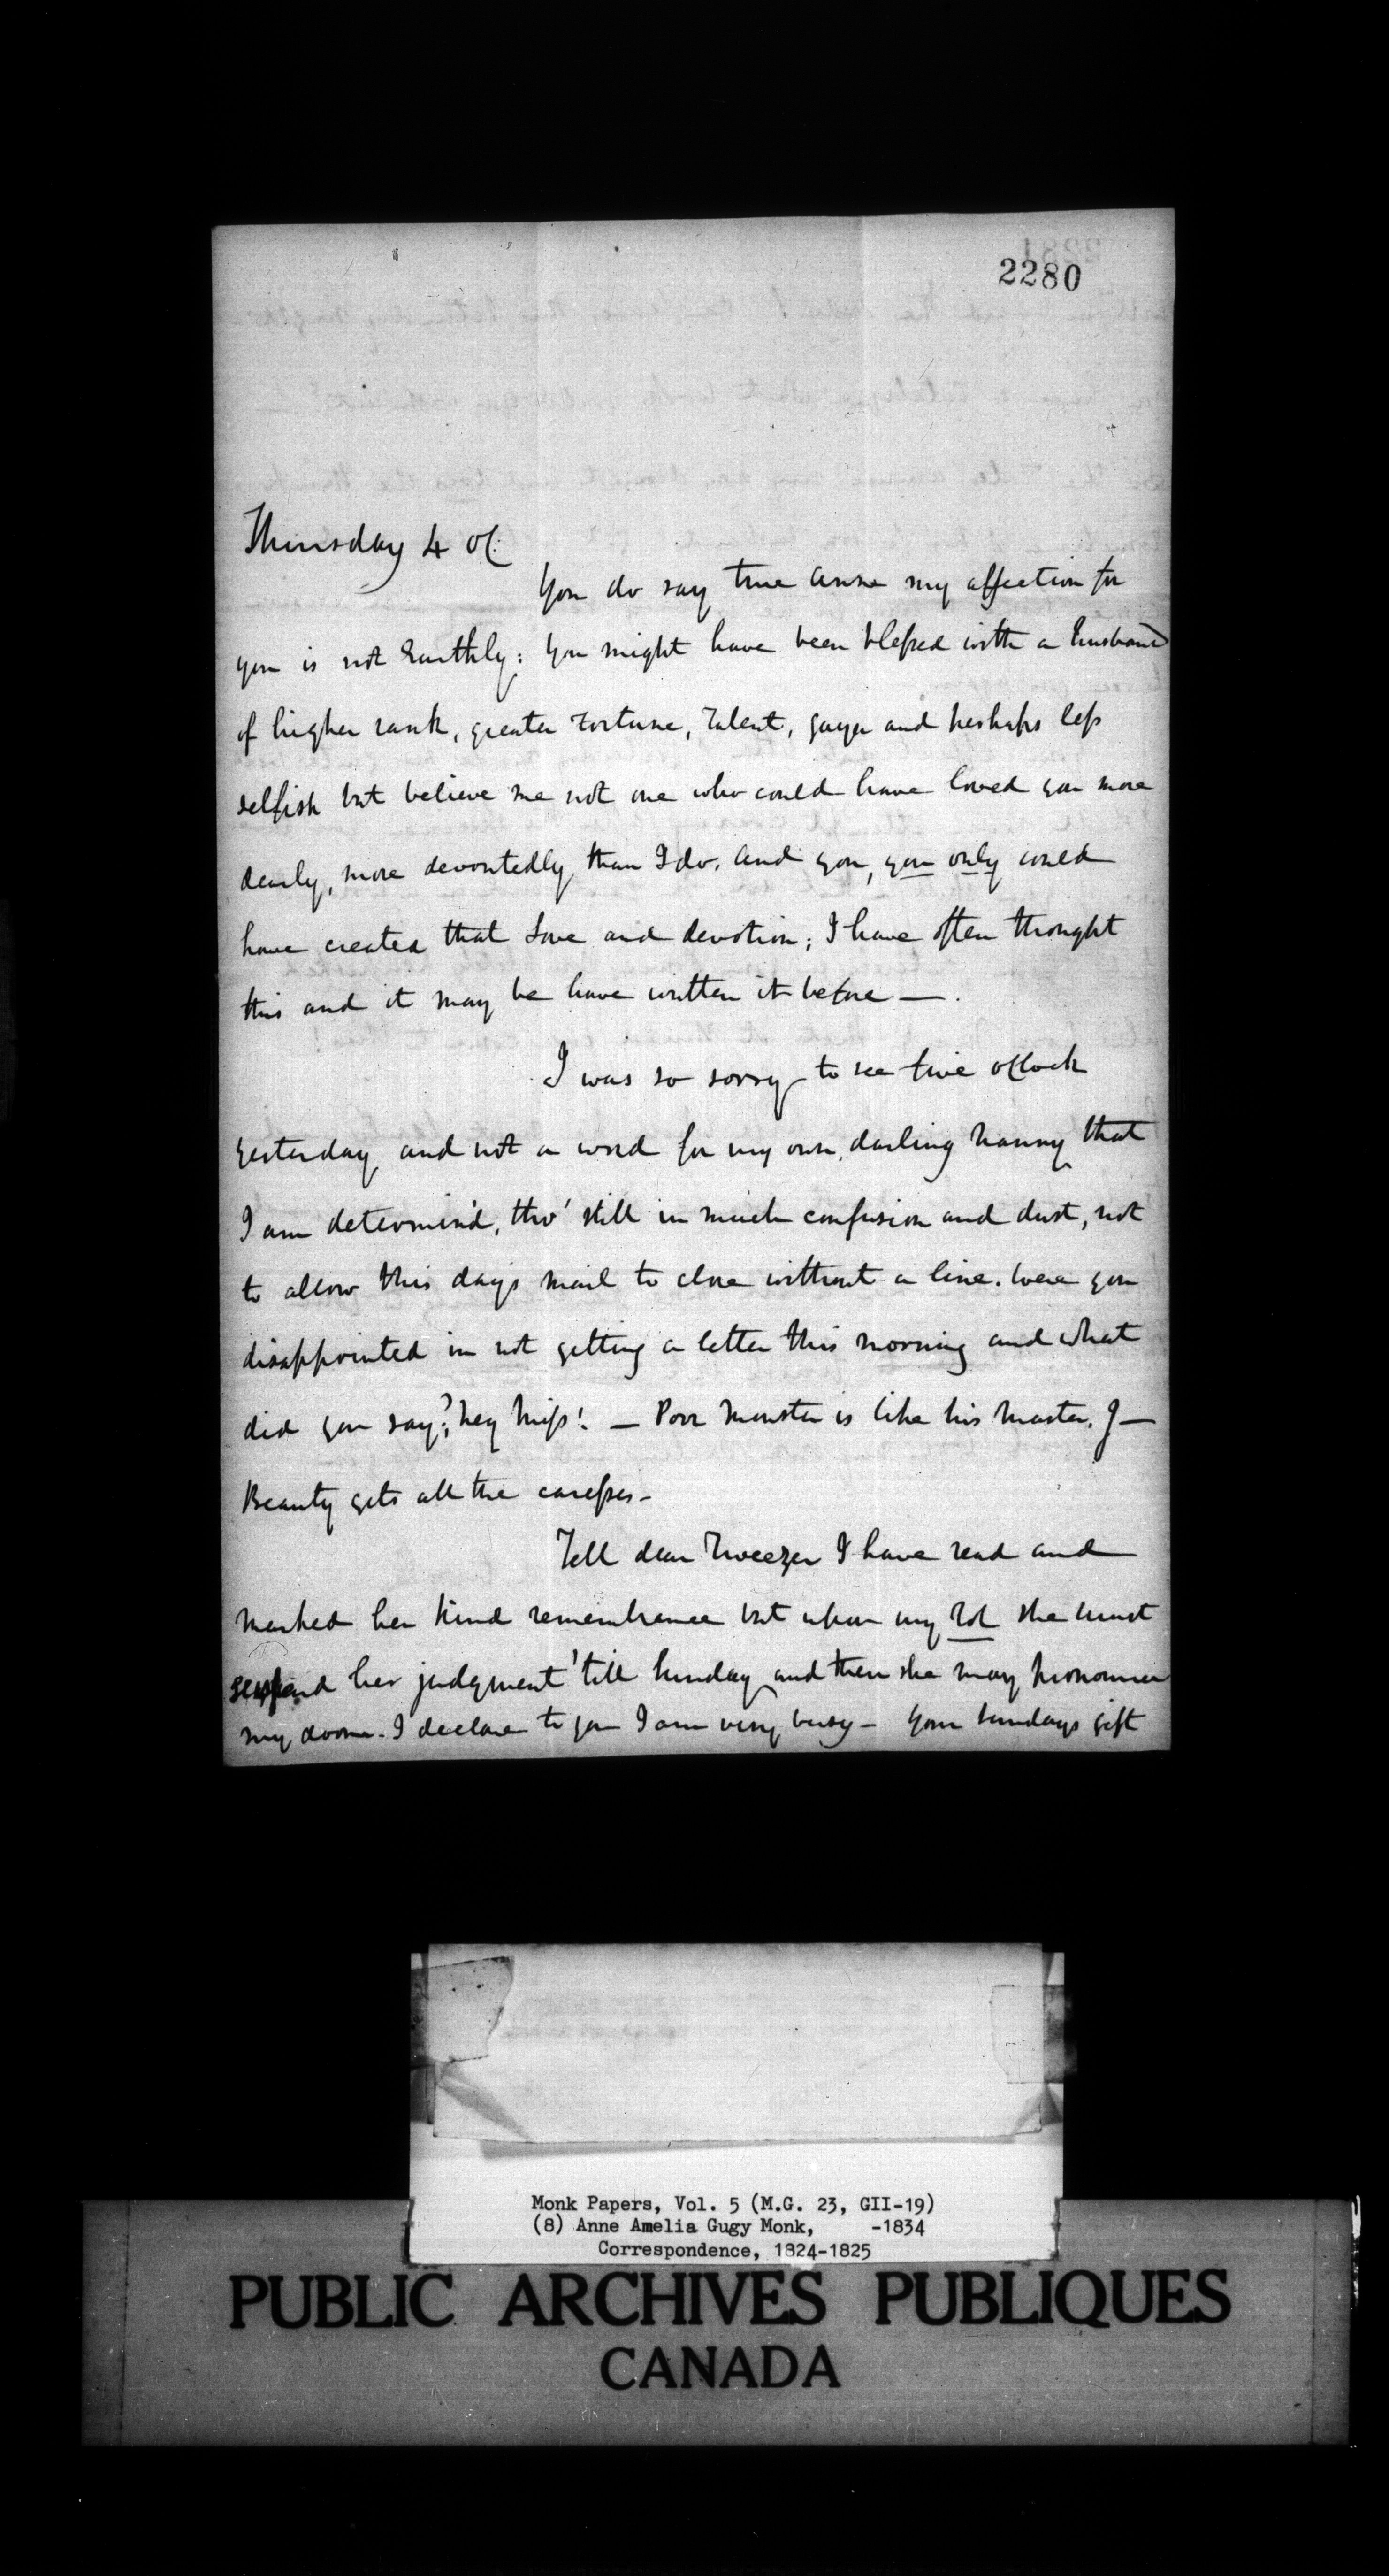 2280
Thursday 4 oC.
You do say true Anne my affection for
you is not Earthly: You might have been blessed with a husband
of higher rank, greater Fortune, Talent, gayer and perhaps less
selfish but believe me not one who could have loved you more
dearly, more devoutedly than I do. And you, you only could
have created that Love and devotion; I have often thought
this and it may be have written it before —.
I was so sorry to see five oClock
yesterday and not a word for my own, darling Nanny that
I am determin'd, tho' still in much confusion and dust, not
to allow this day's mail to close without a line. Were you
disappointed in not getting a letter this morning and what
did you say?, hey Miss! — Poor Munster is like his Master.
Beauty gets all the caresses —
Tell dear Tweezer I have read and
marked her kind remembrance but upon my the must
suspend her judgment 'till Sunday and then she may pronounce
my doom. I declare to you I am very busy — Your Sundays gift
Monk Papers, Vol. 5 (M.G. 23, GII-19)
(8) Anne Amelia Gugy Monk, -1834
Correspondence, 1824-1825
PUBLIC ARCHIVES PUBLIQUES
CANADA